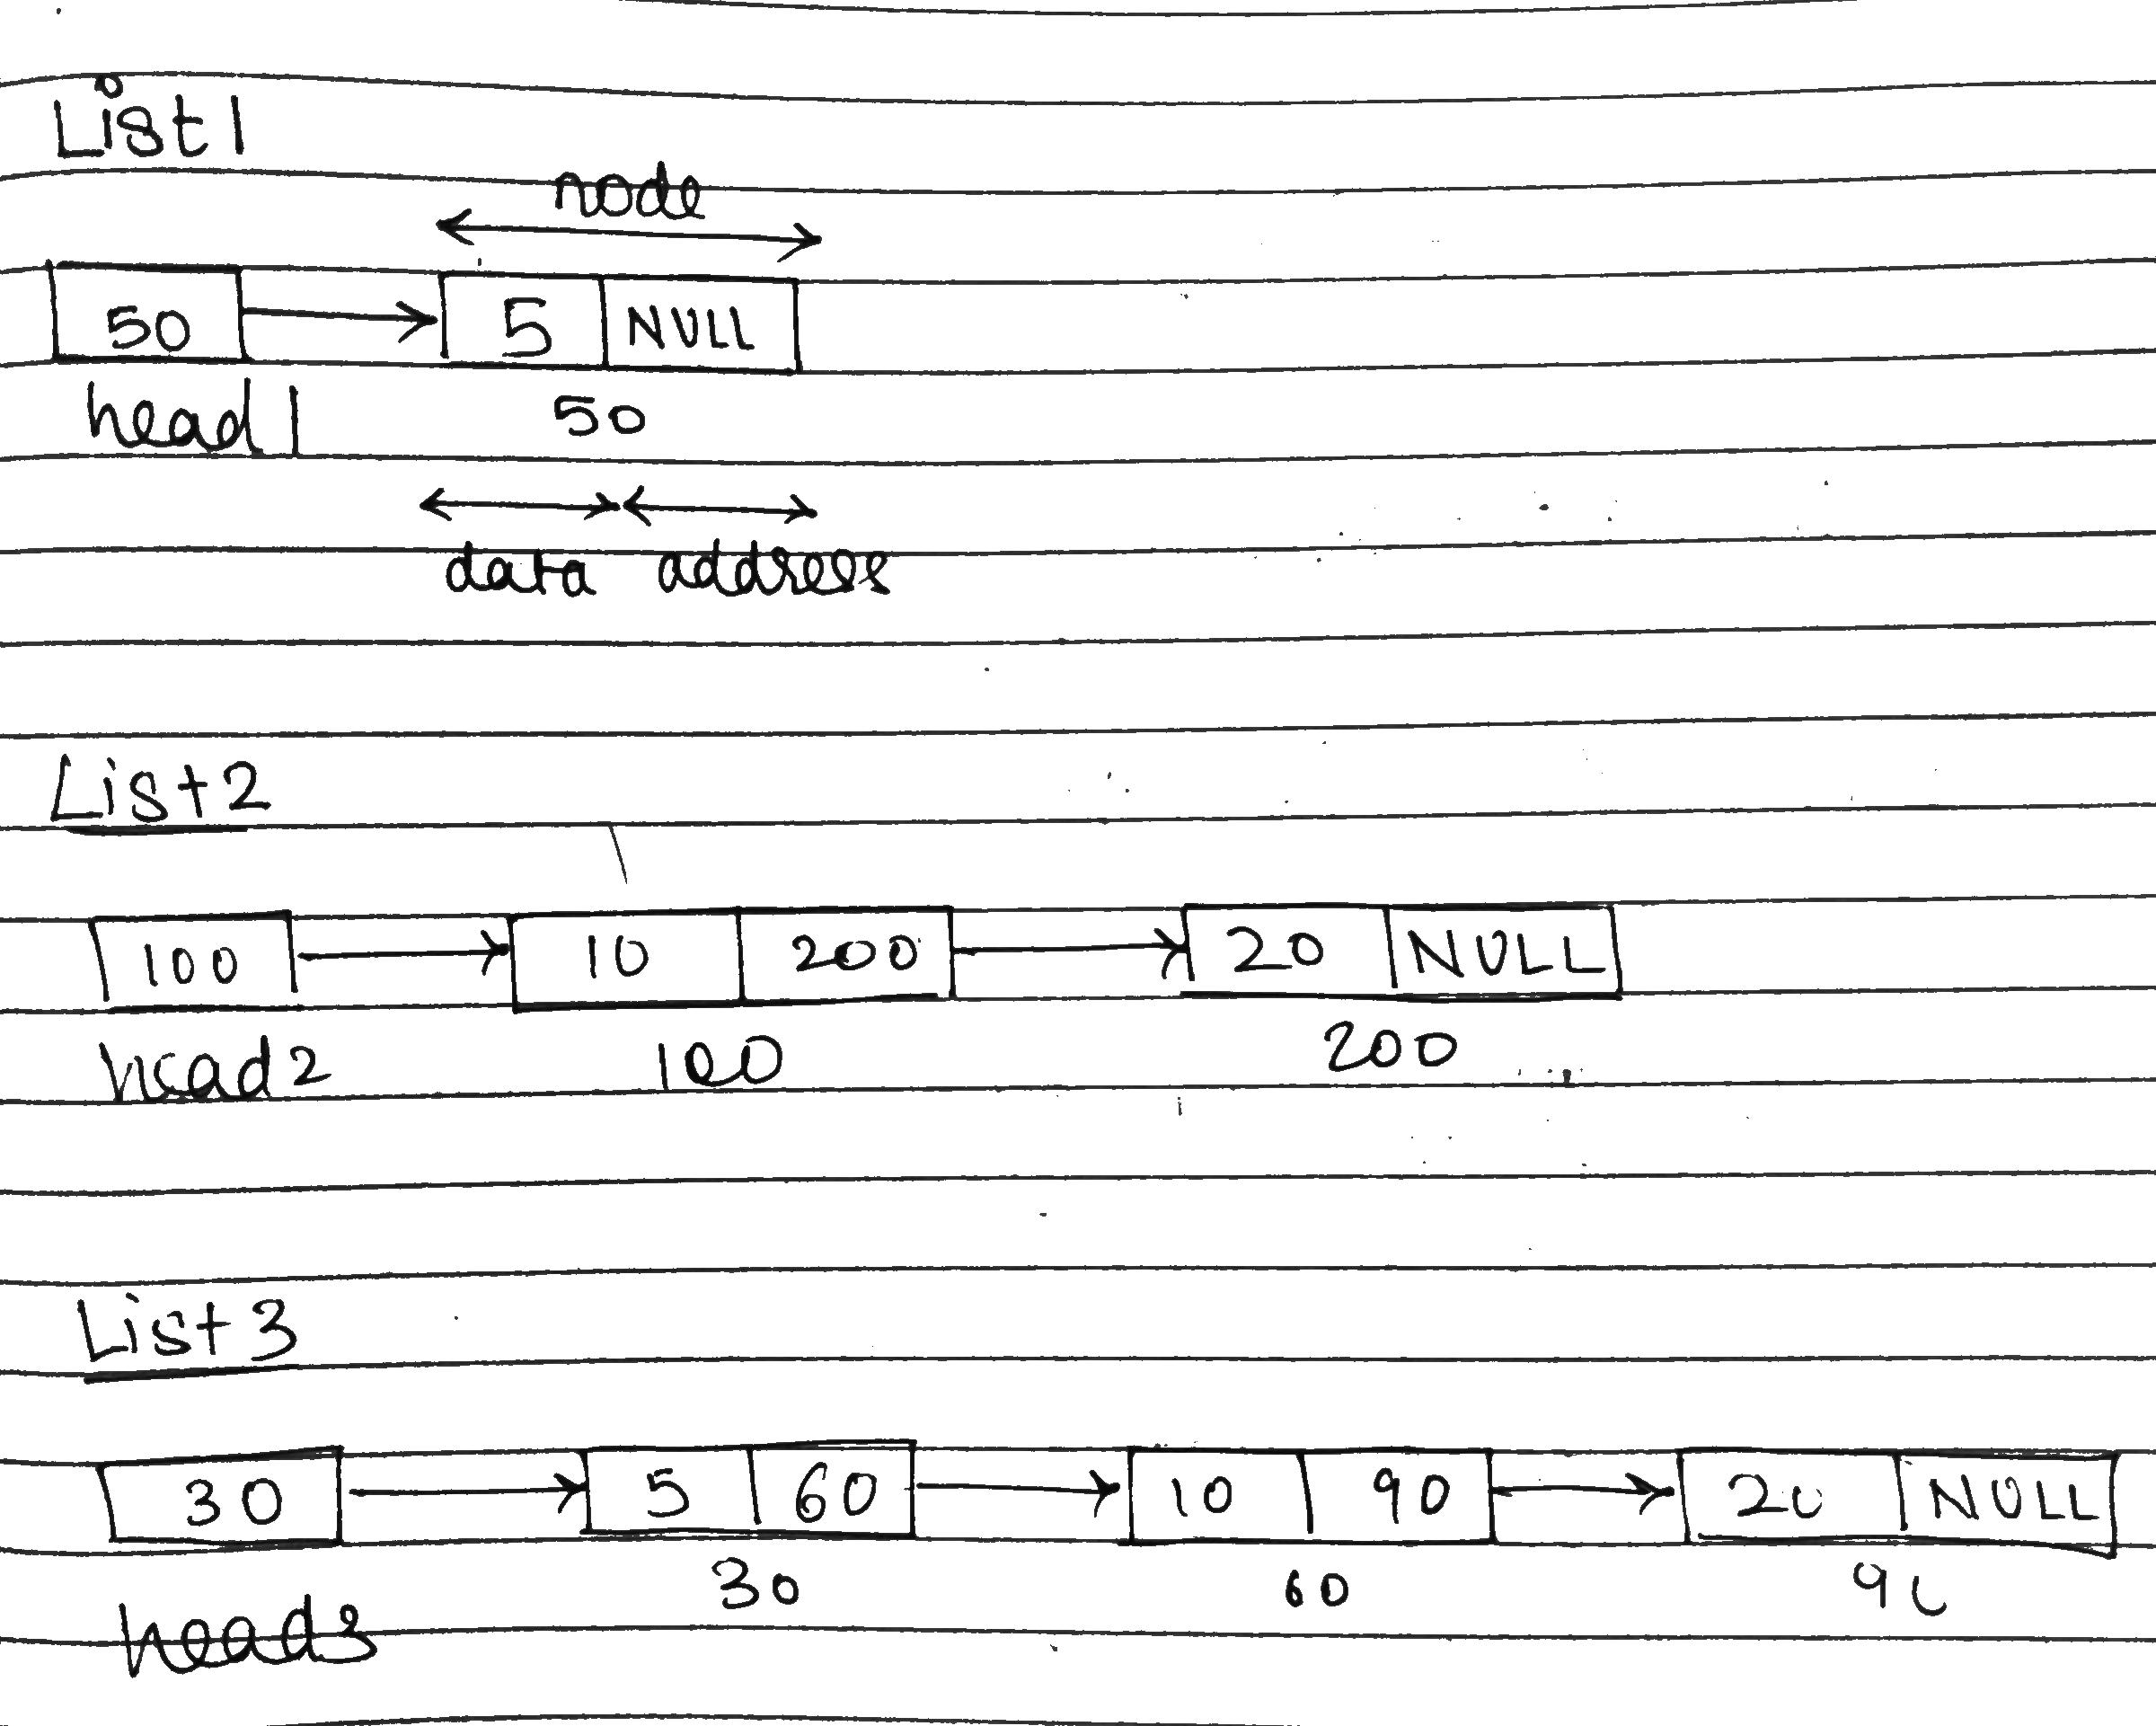 List 1
node
50 5 NULL
head 1 50
data address
List 2
100 10 200 20 NULL
head 2 100 200
List 3
30 5 60 10 90 20 NULL
30 60 90
head3